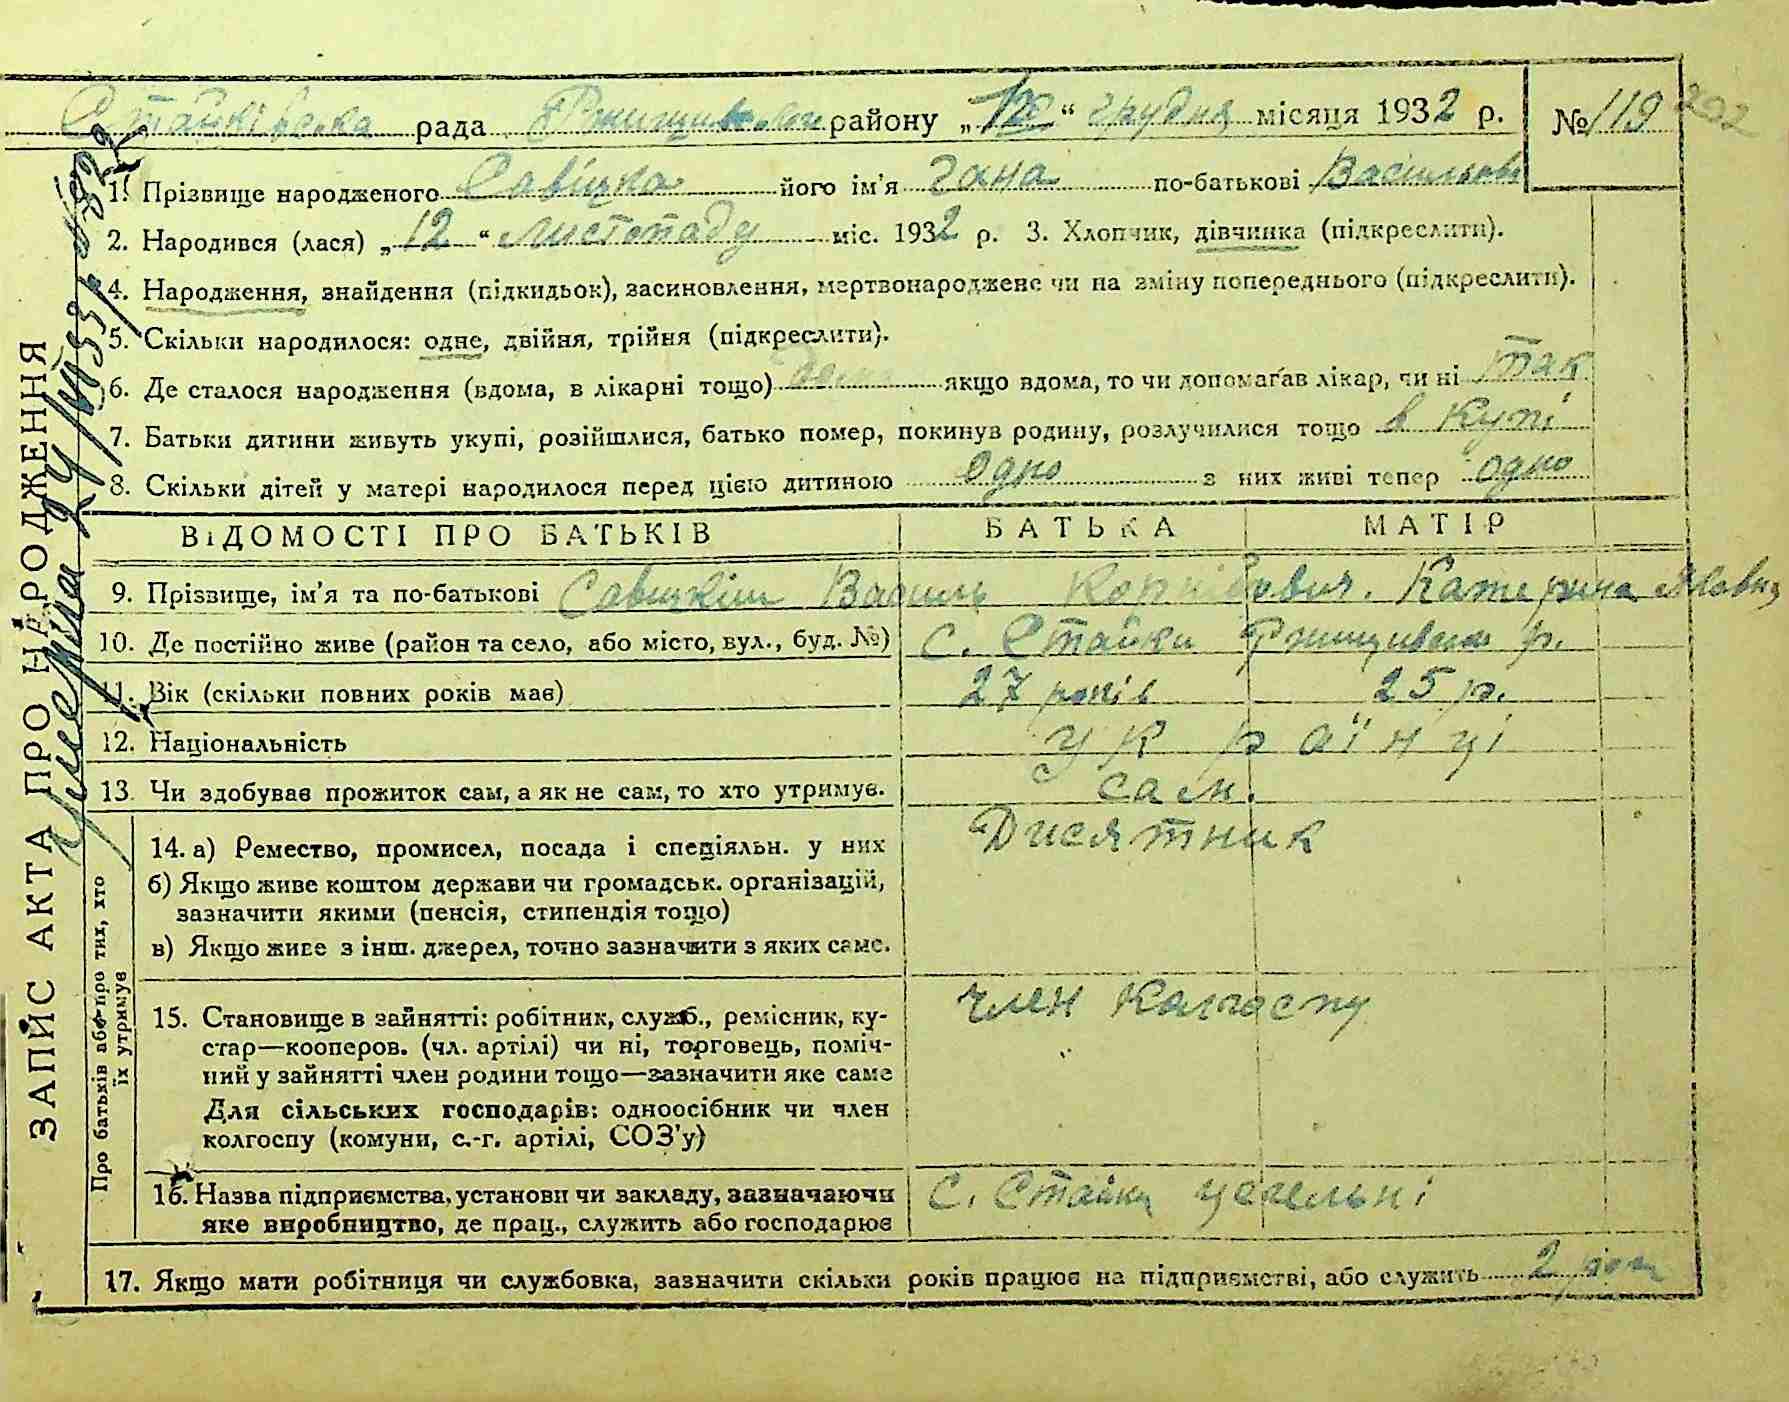 Стайківська рада Ржищівськ. району „12“ грудня місяця 1932 р. № 119 202
1. Прізвище народженого Савіцка його ім’я Гана по-батькові Васильовн
2. Народився (лася) „12“ листопаду міс. 1932 р. 3. Хлопчик, дівчинка (підкреслити).
4. Народження, знайдення (підкидьок), засиновлення, мертвонароджене чи на зміну попереднього (підкреслити).
5. Скільки народилося: одне, двійня, трійня (підкреслити).
6. Де сталося народження (вдома, в лікарні тощо) якщо вдома, то чи допомагав лікар, чи ні так
7. Батьки дитини живуть укупі, розійшлися, батько помер, покинув родину, розлучилися тощо в Купі
8. Скільки дітей у матері народилося перед цією дитиною одно з них живі тепер одно
ВІДОМОСТІ ПРО БАТЬКІВ БАТЬКА МАТІР
9. Прізвище, ім’я та по-батькові Савицкій Василь Корнійович. Катерина
10. Де постійно живе (район та село, або місто, вул., буд. №) с. Стайки Ржищивськ р.
11. Вік (скільки повних років має) 27 років 25 р.
12. Національність українці
13. Чи здобуває прожиток сам, а як не сам, то хто утримує. сам.
14. а) Ремество, промисел, посада і спеціяльн. у них Дисятник
б) Якщо живе коштом держави чи громадськ. організацій,
зазначити якими (пенсія, стипендія тощо)
в) Якщо живе з інш. джерел, точно зазначити з яких саме.
15. Становище в зайнятті: робітник, служб., ремісник, ку-
стар—кооперов. (чл. артілі) чи ні, торговець, поміч-
ний у зайнятті член родини тощо—зазначити яке саме
Для сільських господарів: одноосібник чи член
колгоспу (комуни, с.-г. артілі, СОЗ’у)
член Колгоспу
16. Назва підприємства, установи чи закладу, зазначаючи
яке виробництво, де прац., служить або господарює
с. Стайки цегельні
17. Якщо мати робітниця чи службовка, зазначити скільки років працює на підприємстві, або служить 2
ЗАПИС АКТА ПРО НАРОДЖЕННЯ
Умерла 24/VI 33 р. № 322
Про батьків або про тих, хто
їх утримує